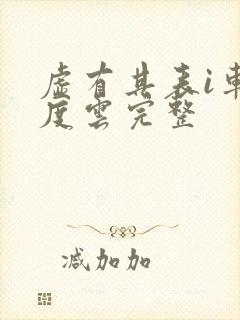 虚有其表i車
度雲完整
减加加